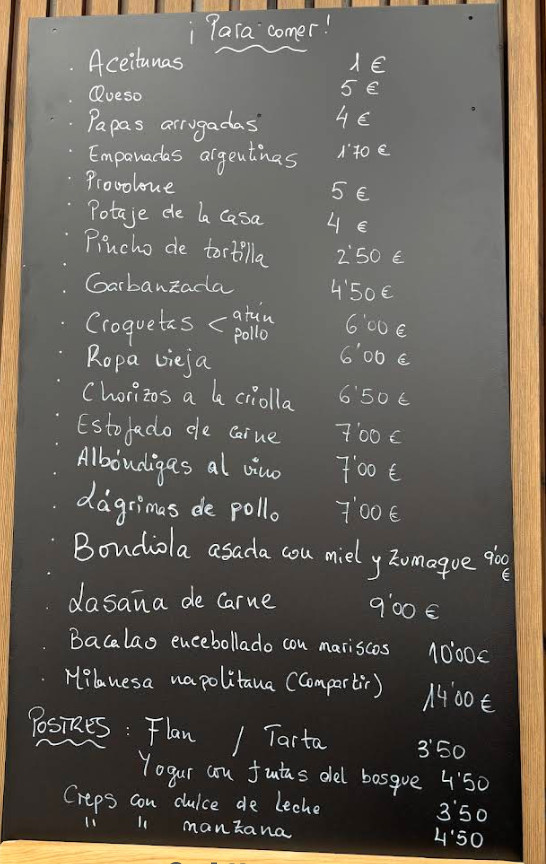 ¡Para comer!
. Aceitunas 1 €
. Queso 5 €
. Papas arrugadas 4 €
. Empanadas argentinas 1'70 €
. Provolone 5 €
. Potaje de la casa 4 €
. Pincho de tortilla 2'50 €
. Garbanzada 4'50 €
. Croquetas < atún pollo 6'00 €
. Ropa vieja 6'00 €
. Chorizos a la criolla 6'50 €
. Estofado de carne 7'00 €
. Albóndigas al vino 7'00 €
. Lágrimas de pollo 7'00 €
. Bondiola asada con miel y zumaque 9'00 €
. Lasaña de carne 9'00 €
. Bacalao encebollado con mariscos 10'00 €
. Milanesa napolitana (Compartir) 14'00 €
POSTRES : Flan / Tarta 3'50
Yogur con frutas del bosque 4'50
Creps con dulce de leche 3'50
" " manzana 4'50